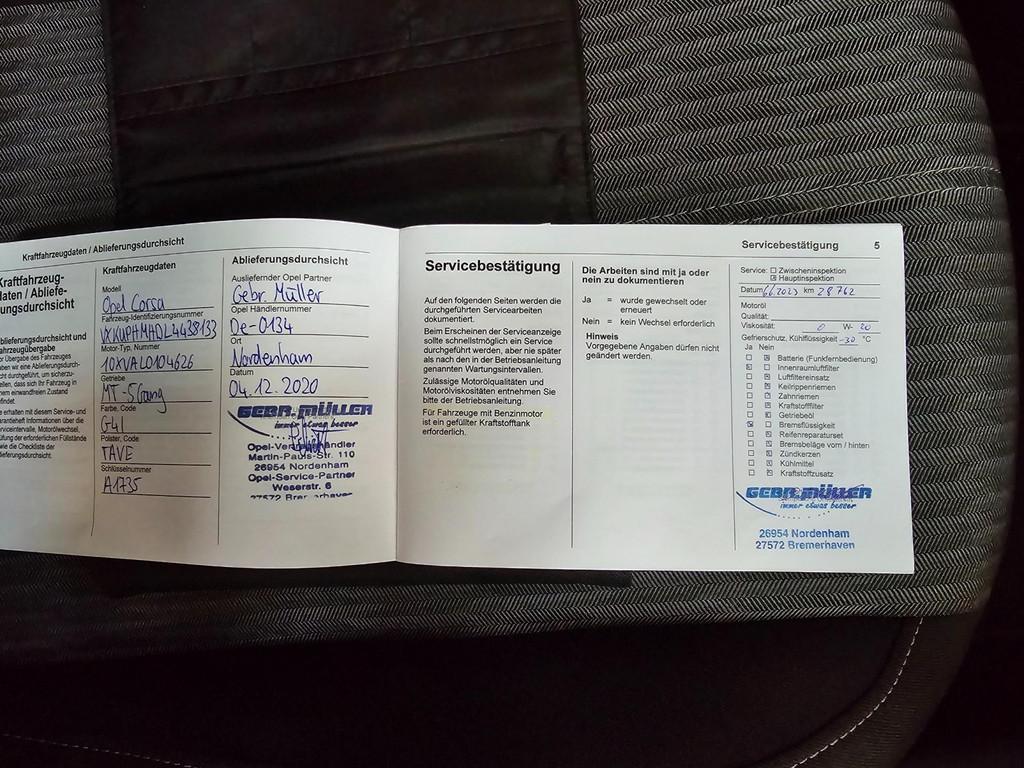 Kraftfahrzeugdaten / Ablieferungsdurchsicht
Kraftfahrzeug-
daten / Abliefe-
ungsdurchsicht
blieferungsdurchsicht und
ahrzeugübergabe
or Übergabe des Fahrzeuges
aben wir eine Ablieferungsdurch-
cht durchgeführt, um sicherzu-
ellen, dass sich Ihr Fahrzeug in
em einwandfreien Zustand
efindet.
e erhalten mit diesem Service- und
arantieheft Informationen über die
erviceintervalle, Motorölwechsel,
üfung der erforderlichen Füllstände
wie die Checkliste der
lieferungsdurchsicht.
Kraftfahrzeugdaten
Modell
Opel Corsa
Fahrzeug-Identifizierungsnummer
VXKUPHMHDL4438133
Motor-Typ, Nummer
10XVAL0104626
Getriebe
MT-5Gang
Farbe, Code
G4I
Polster, Code
TAVE
Schlüsselnummer
A1735
Ablieferungsdurchsicht
Ausliefernder Opel Partner
Gebr. Müller
Opel Händlernummer
De-0134
Ort
Nordenham
Datum
04.12.2020
GEBR. MÜLLER
immer etwas besser
Opel-Vertragshändler
Martin-Pauls-Str. 110
26954 Nordenham
Opel-Service-Partner
Weserstr. 6
27572 Bremerhaven
Servicebestätigung 5
Servicebestätigung
Auf den folgenden Seiten werden die
durchgeführten Servicearbeiten
dokumentiert.
Beim Erscheinen der Serviceanzeige
sollte schnellstmöglich ein Service
durchgeführt werden, aber nie später
als nach den in der Betriebsanleitung
genannten Wartungsintervallen.
Zulässige Motorölqualitäten und
Motorölviskositäten entnehmen Sie
bitte der Betriebsanleitung.
Für Fahrzeuge mit Benzinmotor
ist ein gefüllter Kraftstofftank
erforderlich.
Die Arbeiten sind mit ja oder
nein zu dokumentieren
Ja = wurde gewechselt oder
erneuert
Nein = kein Wechsel erforderlich
Hinweis
Vorgegebene Angaben dürfen nicht
geändert werden.
Service: Zwischeninspektion
Hauptinspektion
Datum 6.6.2023 km 28762
Motoröl
Qualität:
Viskosität: 0 W- 20
Gefrierschutz, Kühlflüssigkeit -30 °C
Ja Nein
Batterie (Funkfernbedienung)
Innenraumluftfilter
Luftfiltereinsatz
Keilrippenriemen
Zahnriemen
Kraftstofffilter
Getriebeöl
Bremsflüssigkeit
Reifenreparaturset
Bremsbeläge vorn / hinten
Zündkerzen
Kühlmittel
Kraftstoffzusatz
GEBR. MÜLLER
immer etwas besser
26954 Nordenham
27572 Bremerhaven